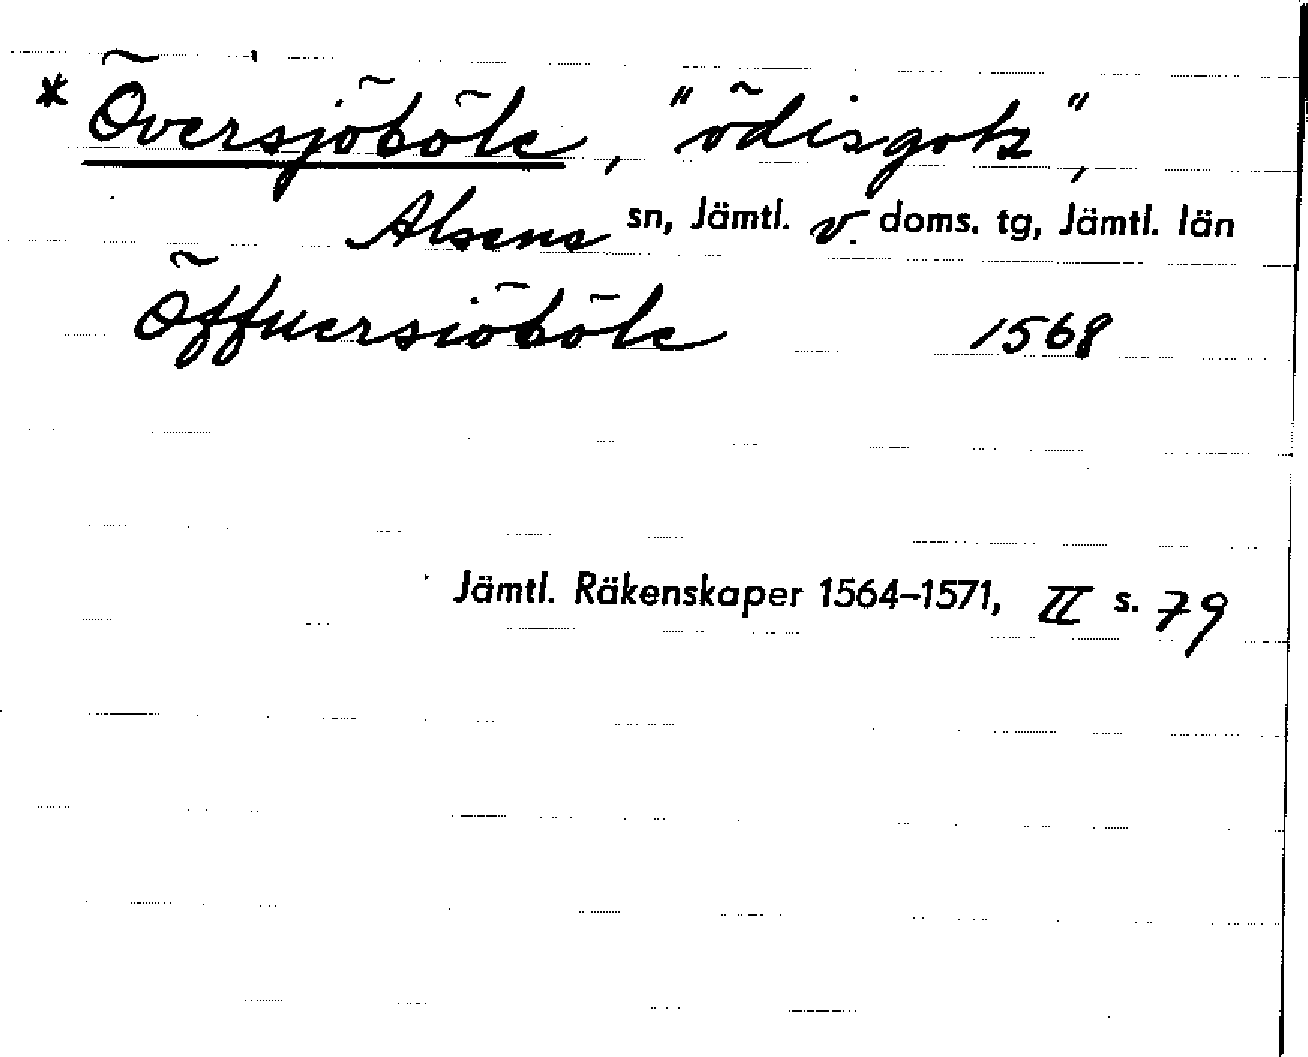 * Översjöböle, "ödisgotz",
Alsens sn, Jämtl. v. doms. tg, Jämtl. län
Öffuersiöböle 1568
Jämtl. Räkenskaper 1564–1571, II s. 79